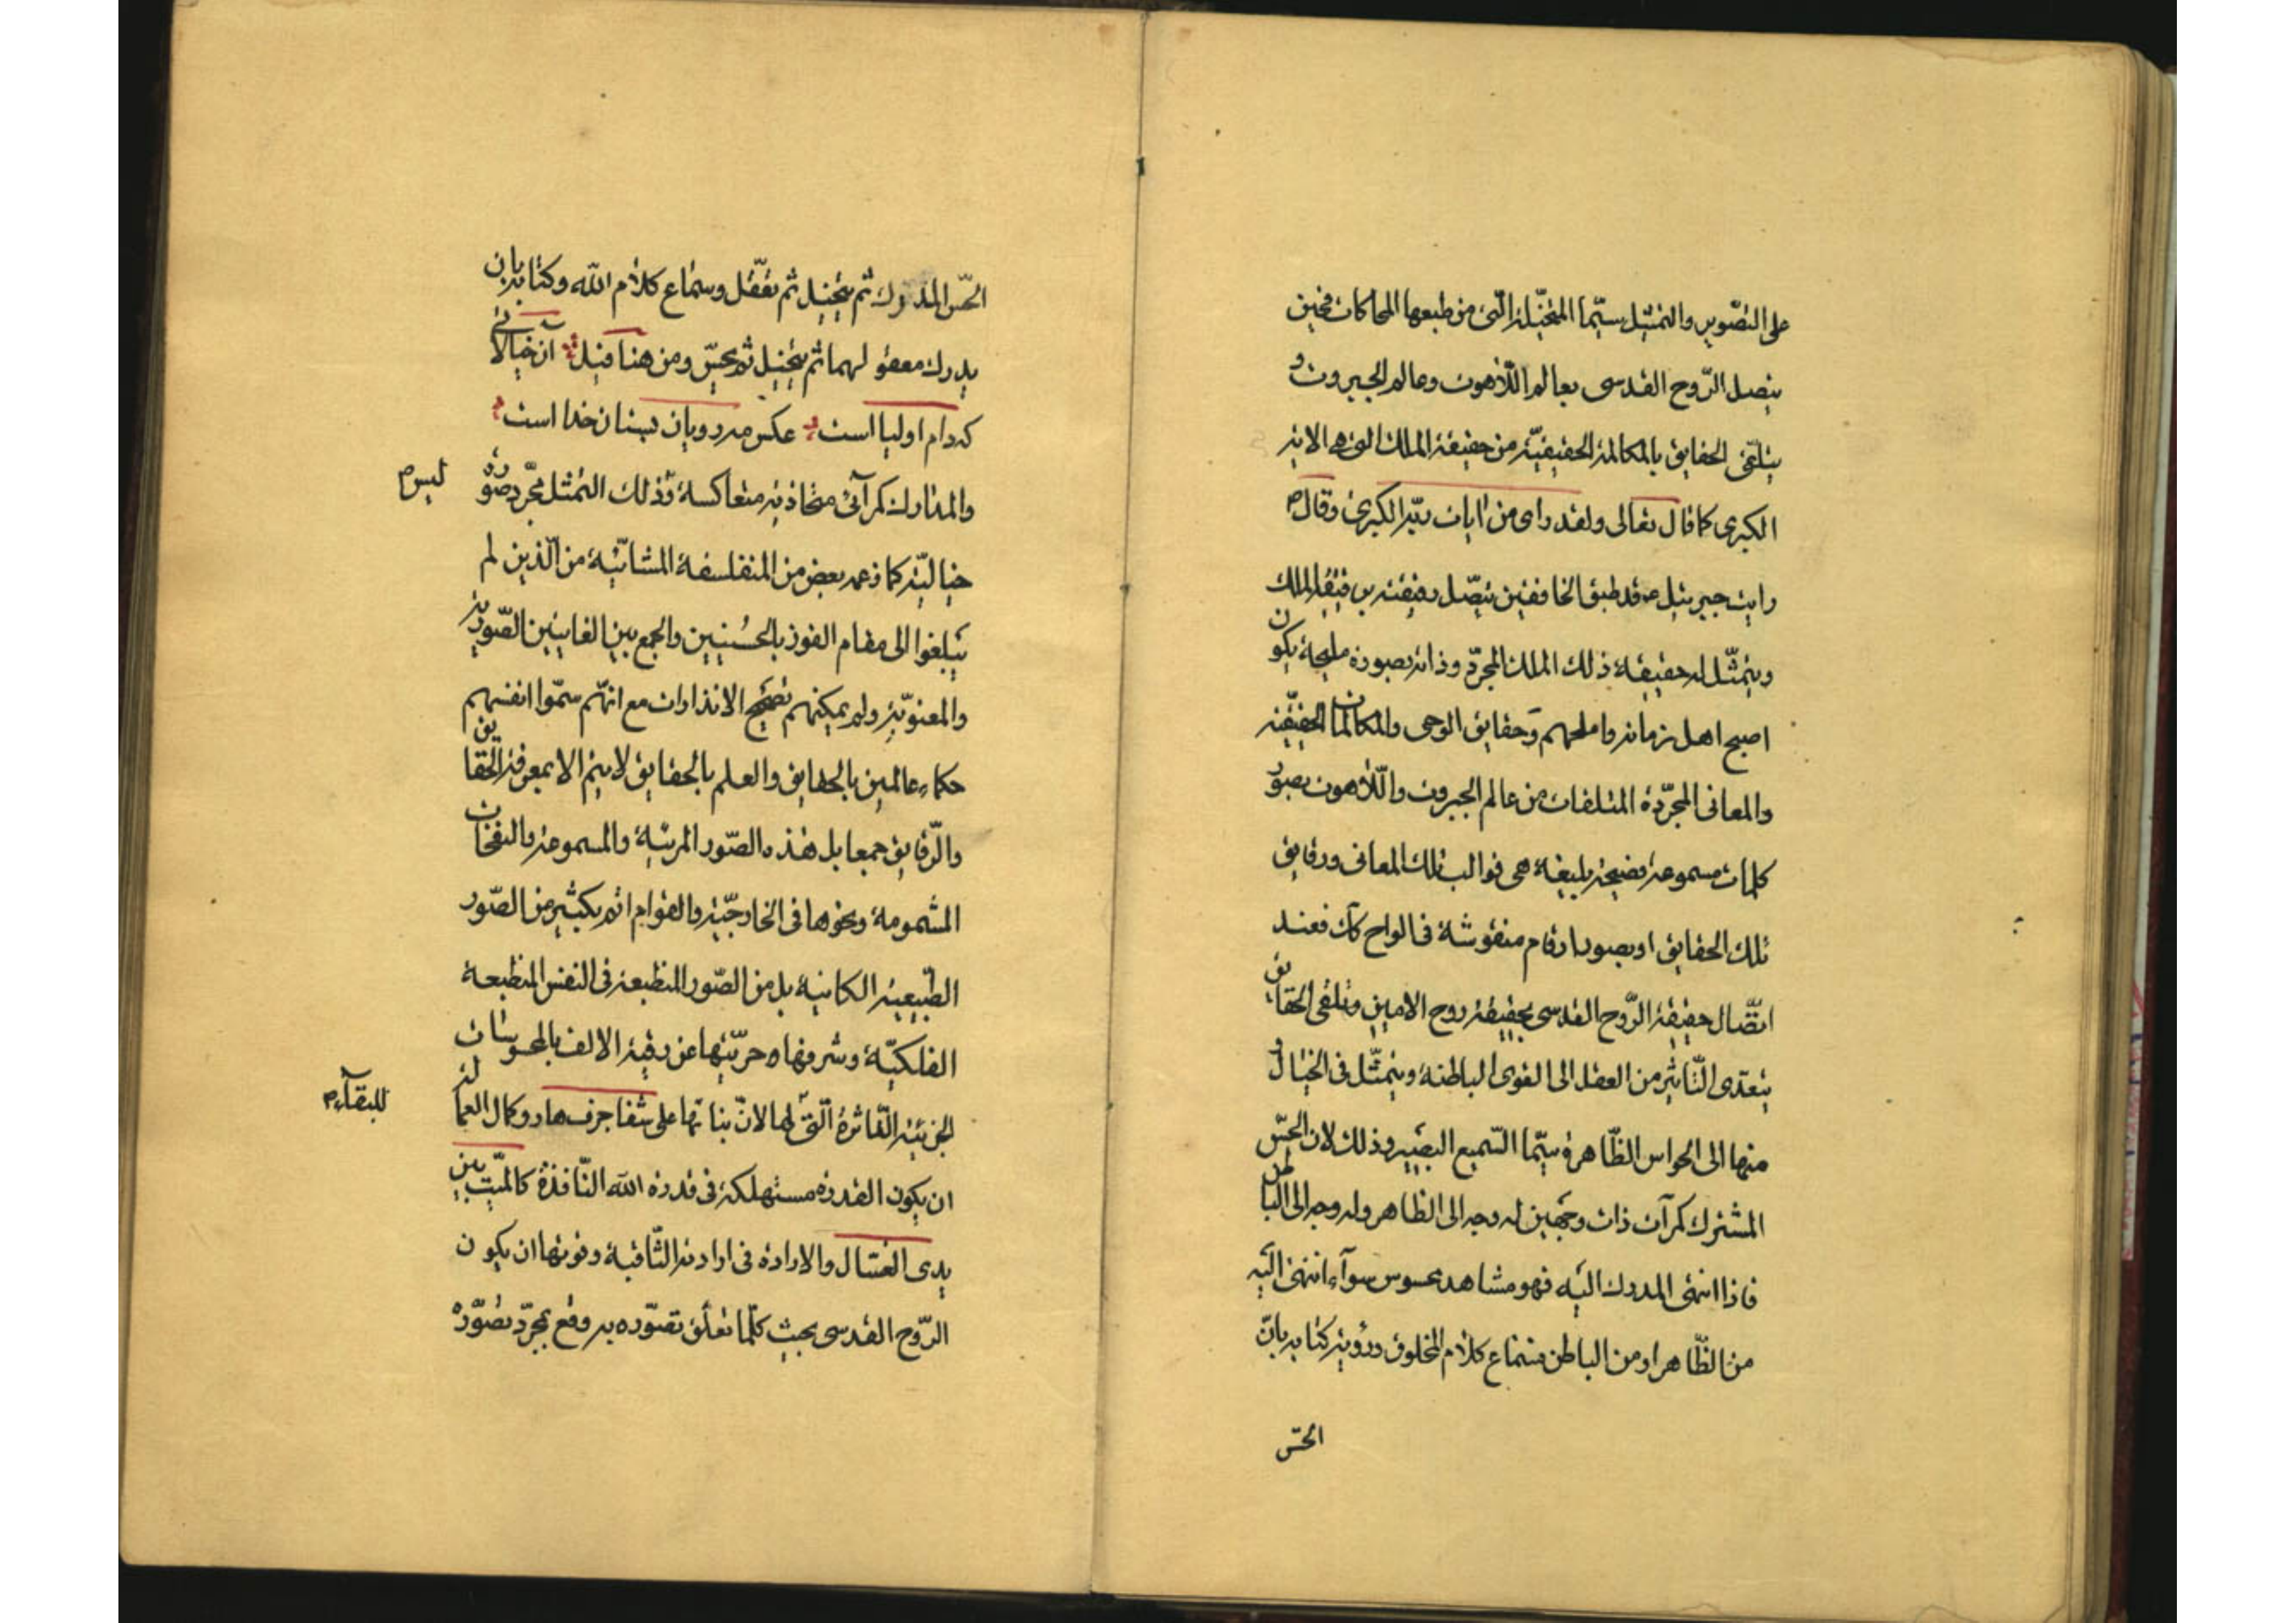 على التصوير والتمثيل سيّما المتخيّلة الّتى من طبعها المحاكات فحين
يتصل الرّوح القدسى بعالم اللّاهوت وعالم الجبروت و
يتلقى الحقايق بالمكالمة الحقيقيّة من حقيقة الملك التى هى الاية
الكبرى كما قال تعالى ولقد راى من ايات ربّه الكبرى وقال ص
رايت جبرئيل ع قد طبق الخافقين يتّصل رقيقته برقيقة الملك
ويتمثّل له حقيقة ذلك الملك المجرّد وذاته بصورة مليحة يكون
اصبح اهل زمانه واملحهم وحقايق الوحى والمكالمات الحقيقية
والمعانى المجرّدة المتلقات من عالم الجبروت واللّاهوت بصور
كلمات مسموعة فصيحة بليغة هى قوالب تلك المعانى ورقايق
تلك الحقايق او بصور ارقام منقوشة فى الواح كك فعند
اتّصال حقيقة الرّوح القدسى بحقيقة روح الامين وتلقى الحقايق
يتعدى التّاثير من العقل الى القوى الباطنة ويتمثّل فى الخيال و
منها الى الحواس الظّاهرة سيّما السّميع البصير وذلك لان الحسّ
المشترك كمرآت ذات وجهين له وجه الى الظاهر وله وجه الى الباطن
فاذا انتهى المدرك اليه فهو مشاهد محسوس سوآء انتهى اليه
من الظّاهر او من الباطن فسماع كلام المخلوق ورؤية كتابه بانّ
الحسّ
الحسّ المدرك ثم يتخيل ثم تعقّل وسماع كلام الله وكتابه بان
يدرك معقولهما ثم يتخيل ثم يحسّ ومن هنا قيل آن خيالاتى
كه دام اوليا است عكس مه رويان بستان خدا است
والمدارك كمرآئى متحاذية متعاكسة وذلك التمثل مجرّد صورة
ليس م
خياليّة كما زعمه بعض من المتفلسفة المشائيّة من الّذين لم
يبلغوا الى مقام الفوز بالحسُنيين والجمع بين الغايتين الصّورية
والمعنويّة ولم يمكنهم تصحيح الانذارات مع انهّم سمّوا انفسهم
حكماء عالمين بالحقايق والعلم بالحقايق لا يتم الا بمعرفة الحقايق
والرّقايق جمعا بل هذه الصّور المرئية والمسموعة والنفحات
المشمومة ونحوها فى الخارجيّة والقوام اتم بكثير من الصّور
الطّبيعية الكاينة بل من الصّور المنطبعة فى النفس المنطبعة
الفلكيّة وشرفها وحريّتها عن رقية الالف بالمحسوسات
الجزئية الدّاثرة الّتى لها لانّ بنائها على شفا جرف هار وكمال العمالة
للبقآء م
ان يكون القدرة مستهلكة فى قدرة الله النّافذة كالميّت بين
يدى الغسّال والارادة فى ارادته الثّاقبة وقوتها ان يكون
الرّوح القدسى بحيث كلّما تعلّق تصّوره به وقع بمجرّد تصّوره